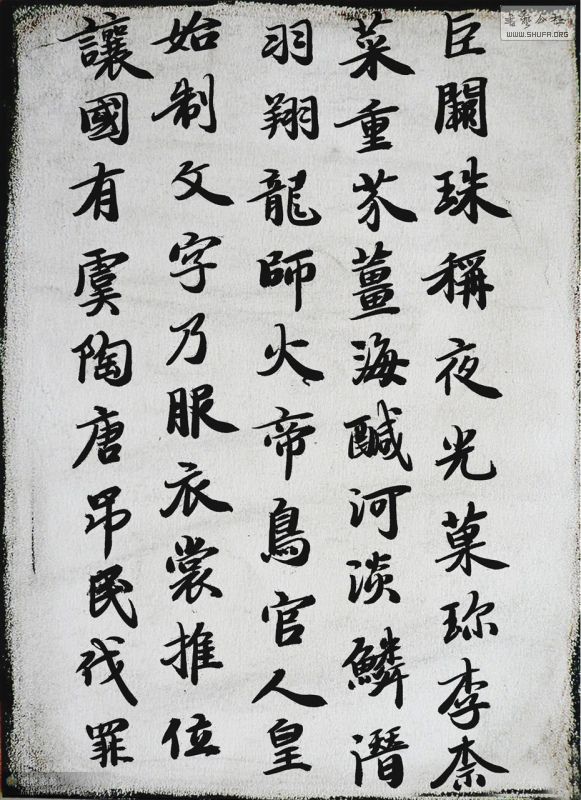 巨闕珠稱夜光菓珎李柰
菜重芥薑海鹹河淡鱗潛
羽翔龍師火帝鳥官人皇
始制文字乃服衣裳推位
讓國有虞陶唐吊民伐罪
书艺公社
WWW.SHUFA.ORG